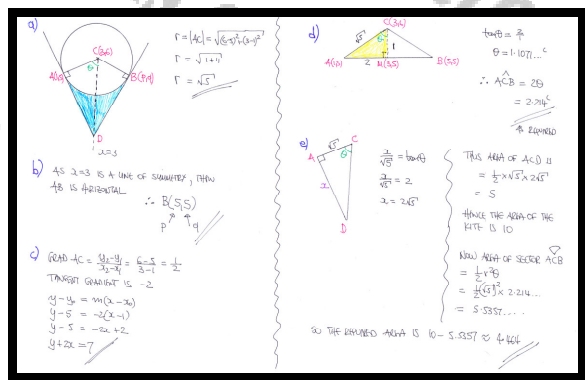 a)
C(3,6)
θ
A(1,5)
B(p,q)
D
x=3
r = |AC| = √(6-5)²+(3-1)²
r = √
r = √5
b) AS x=3 IS A LINE OF SYMMETRY, THEN
AB IS HORIZONTAL
∴ B(5,5)
p q
c) GRAD AC = y₂-y₁/x₂-x₁ = 6-5/3-1 = 1/2
TANGENT GRADIENT IS -2
y-y₀ = m(x-x₀)
y-5 = -2(x-1)
y-5 = -2x+2
y+2x = 7
d)
C(3,6)
√5
θ
1
A(1,5)
2
M(3,5)
B(5,5)
tanθ = 2/1
θ = 1.1071...ᶜ
∴ AĈB = 2θ
= 2.214ᶜ
AS REQUIRED
e)
A
√5
C
θ
x
D
x/√5 = tanθ
x/√5 = 2
x = 2√5
THUS AREA OF ACD IS
= 1/2 × √5 × 2√5
= 5
HENCE THE AREA OF THE
KITE IS 10
NOW AREA OF SECTOR ACB
= 1/2 r²θ
= 1/2 (√5)² × 2.214...
= 5.5357...
SO THE REQUIRED AREA IS 10 - 5.5357 ≈ 4.464